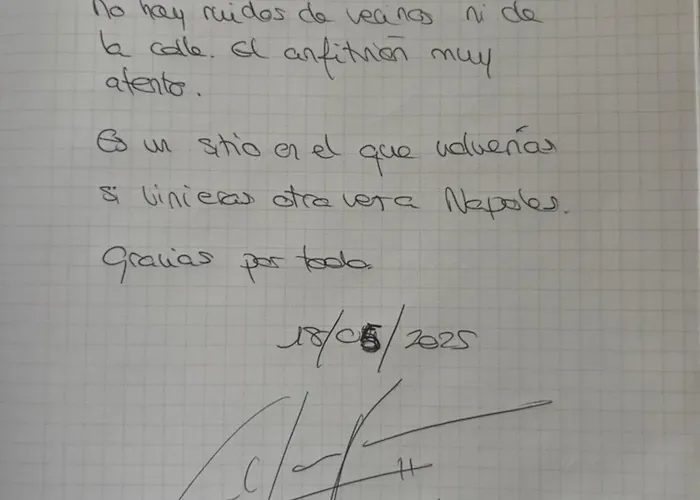 No hay ruidos de vecinos ni de
la calle. El anfitrión muy
atento.
Es un sitio en el que volverías
si vinieras otra vez a Napoles.
Gracias por todo.
18/05/2025